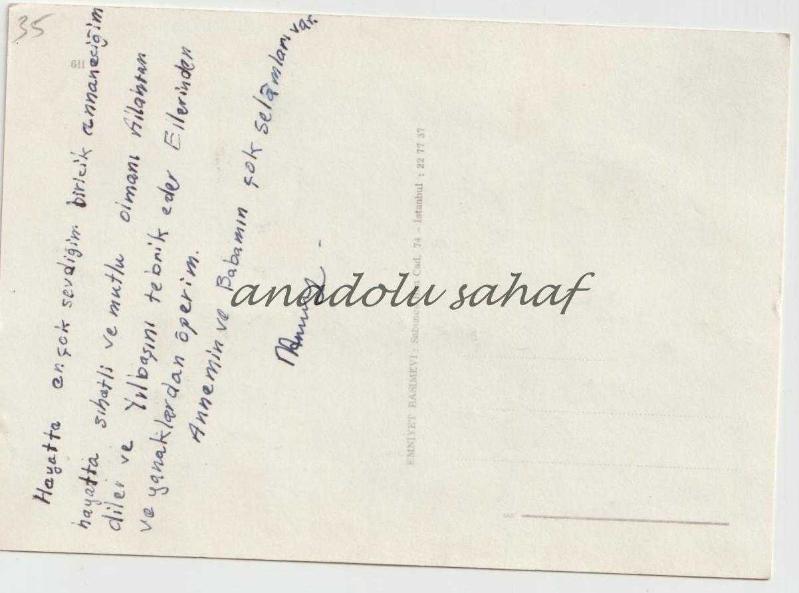 35
611
Hayatta en çok sevdiğim biricik annaneciğim
hayatta sıhatli ve mutlu olmanı Allahtan
diler ve Yılbaşını tebrik eder Ellerinden
ve yanaklardan öperim.
Annemin ve Babamın çok selâmları var.
anadolu sahaf
EMNİYET BASIMEVİ : Cad. 74 - İstanbul : 22 77 57